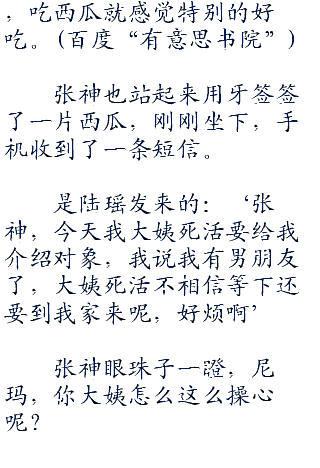 ，吃西瓜就感觉特别的好
吃。（百度“有意思书院”）
张神也站起来用牙签签
了一片西瓜，刚刚坐下，手
机收到了一条短信。
是陆瑶发来的：‘张
神，今天我大姨死活要给我
介绍对象，我说我有男朋友
了，大姨死活不相信等下还
要到我家来呢，好烦啊’
张神眼珠子一瞪，尼
玛，你大姨怎么这么操心
呢？